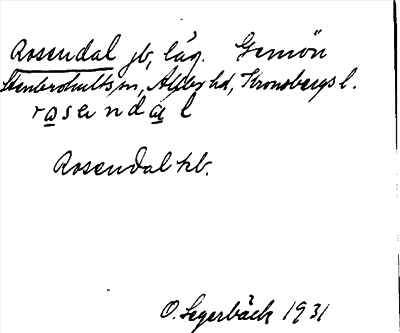 Rosendal jb, läg. Gemön
Stenbrohults sn, Allbo hd, Kronobergs l.
rosendal
Rosendal kb.
O. Segerbäck 1931